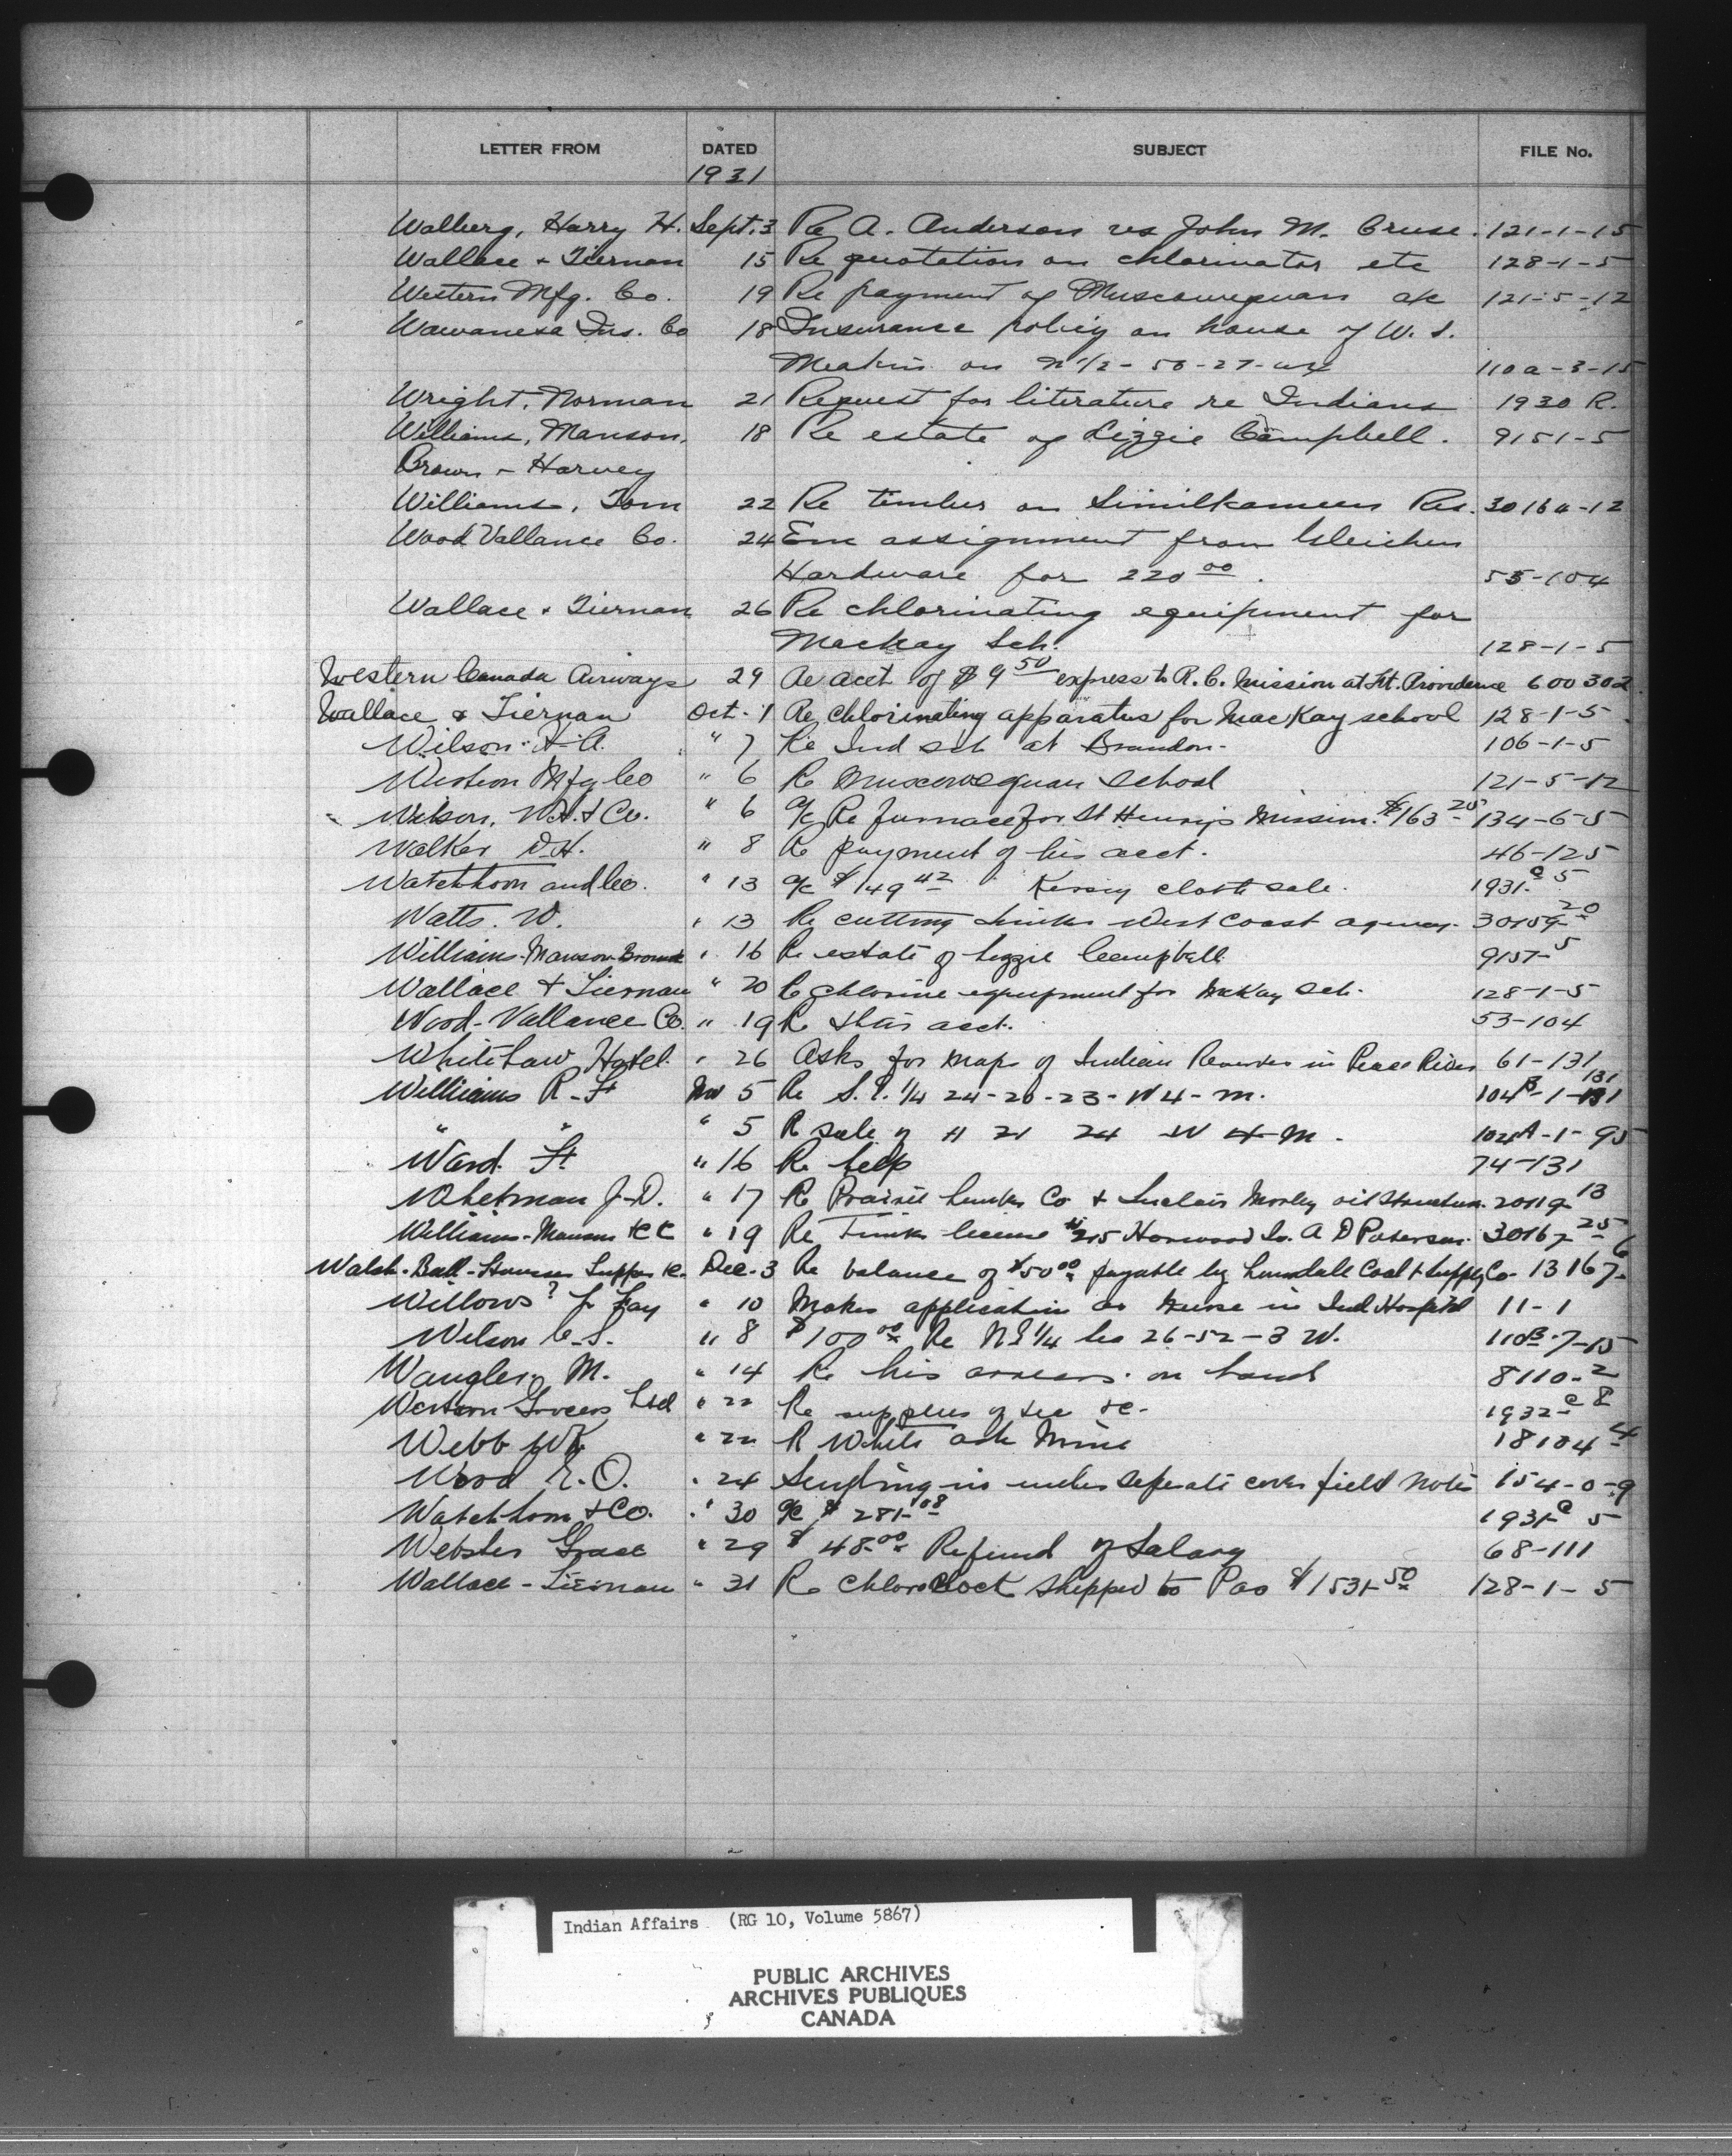 LETTER FROM DATED SUBJECT FILE No.
1931
Walberg, Harry H. Sept. 3 Re A. Anderson vs John M. Cruse. 121-1-15
Wallace & Tiernan 15 Re quotation on chlorinator etc 128-1-5
Western Mfg. Co. 19 Re payment of Muscowequan a/c 121-5-12
Wawanesa Ins. Co 18 Insurance policy on house of W. S.
Meakin on N 1/2 - 50-27- 110a-3-15
Wright, Norman 21 Request for literature re Indians 1930 R.
Williams, Manson, 18 Re estate of Lizzie Campbell. 9151-5
Brown & Harvey
Williams, Tom 22 Re timber on Similkameen Res. 30164-12
Wood Vallance Co. 24 Enc assignment from Gleichen
Hardware for 220 00. 53-104
Wallace & Tiernan 26 Re chlorinating equipment for
MacKay Sch. 128-1-5
Western Canada Airways 29 Re acct of $9 50 express to R.C. Mission at Ft. Providence 600302
Wallace & Tiernan Oct. 1 Re chlorinating apparatus for MacKay school 128-1-5
Wilson H.A. " 7 Re Ind sch at Brandon. 106-1-5
Western Mfg Co " 6 Re Muscowequan School 121-5-12
Wilson, W.H. & Co. " 6 a/c Re furnace for St Henri's Mission. $163 25 134-6-5
Walker D.H. " 8 Re payment of his acct. 46-125
Watchhorn and Co. " 13 a/c $149 42 Kersey cloth sale. 1931-c 5
Watts. W. " 13 Re cutting timber West Coast agency. 30159-20
Williams-Manson-Brown " 16 Re estate of Lizzie Campbell 9157-5
Wallace & Tiernan " 20 Re chlorine equipment for McKay Sch. 128-1-5
Wood-Vallance Co. " 19 Re their acct. 53-104
Whitelaw Hotel. " 26 Asks for maps of Indian Reserves in Peace River 61-131
Williams R.F Nov 5 Re S.E. 1/4 24-20-23-W4-M. 104B-1-131
" " " 5 Re sale of 21 24 W 4 M. 104A-1-95
Ward. F. " 16 Re help 74-131
Whetman J.D. " 17 Re Prairie Lumber Co & Sinclair Morley oil 20119-13
Williams-Manson &c " 19 Re Timber license #215 Horwood Lo. A D Paterson. 30167-25
Walsh-Ball- Dec. 3 Re balance of $50 00 payable by Coal & Supply Co. 13167-6
Willows? J Fay " 10 Makes application as Nurse in Ind Hospital 11-1
Wilson C.S. " 8 $100 00 Re NE 1/4 Sec 26-52-3 W. 110B-7-15
Wangler. M. " 14 Re his arrears on land 8110-2
Western Grocers Ltd " 22 Re supplies of tea &c. 1932-c 8
Webb W " 22 Re White ash Mine 18104-4
Wood E.O. " 24 Sending in under seperate cover field notes 154-0-9
Watchhorn & Co. " 30 a/c $281 08 1931-c 5
Webster Grace " 29 $48.00 Refund of Salary 68-111
Wallace-Tiernan " 31 Re Chloroclock Shipped to Pas $1531 50 128-1-5
Indian Affairs (RG 10, Volume 5867)
PUBLIC ARCHIVES
ARCHIVES PUBLIQUES
CANADA